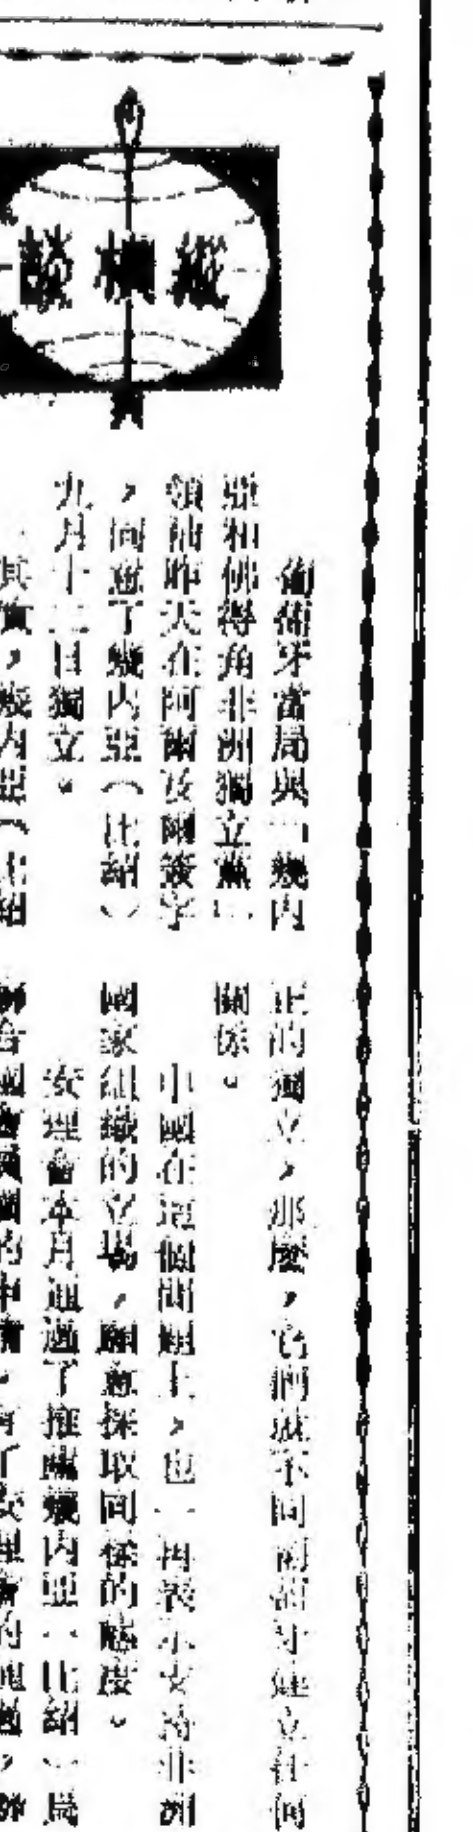 縱橫談
葡萄牙當局與「幾內
亞和佛得角非洲獨立黨」
領袖昨天在阿爾及爾簽字
，同意了幾內亞（比紹）
九月十二日獨立。
其實，幾內亞（比紹
正的獨立，那麼，它們就不同葡萄牙建立任何
關係。
中國在這個問題上，也一再表示支持非洲
國家組織的立場，願意採取同樣的態度。
安理會本月通過了推薦幾內亞（比紹）爲
聯合國會員國的申請，有了安理會的通過，